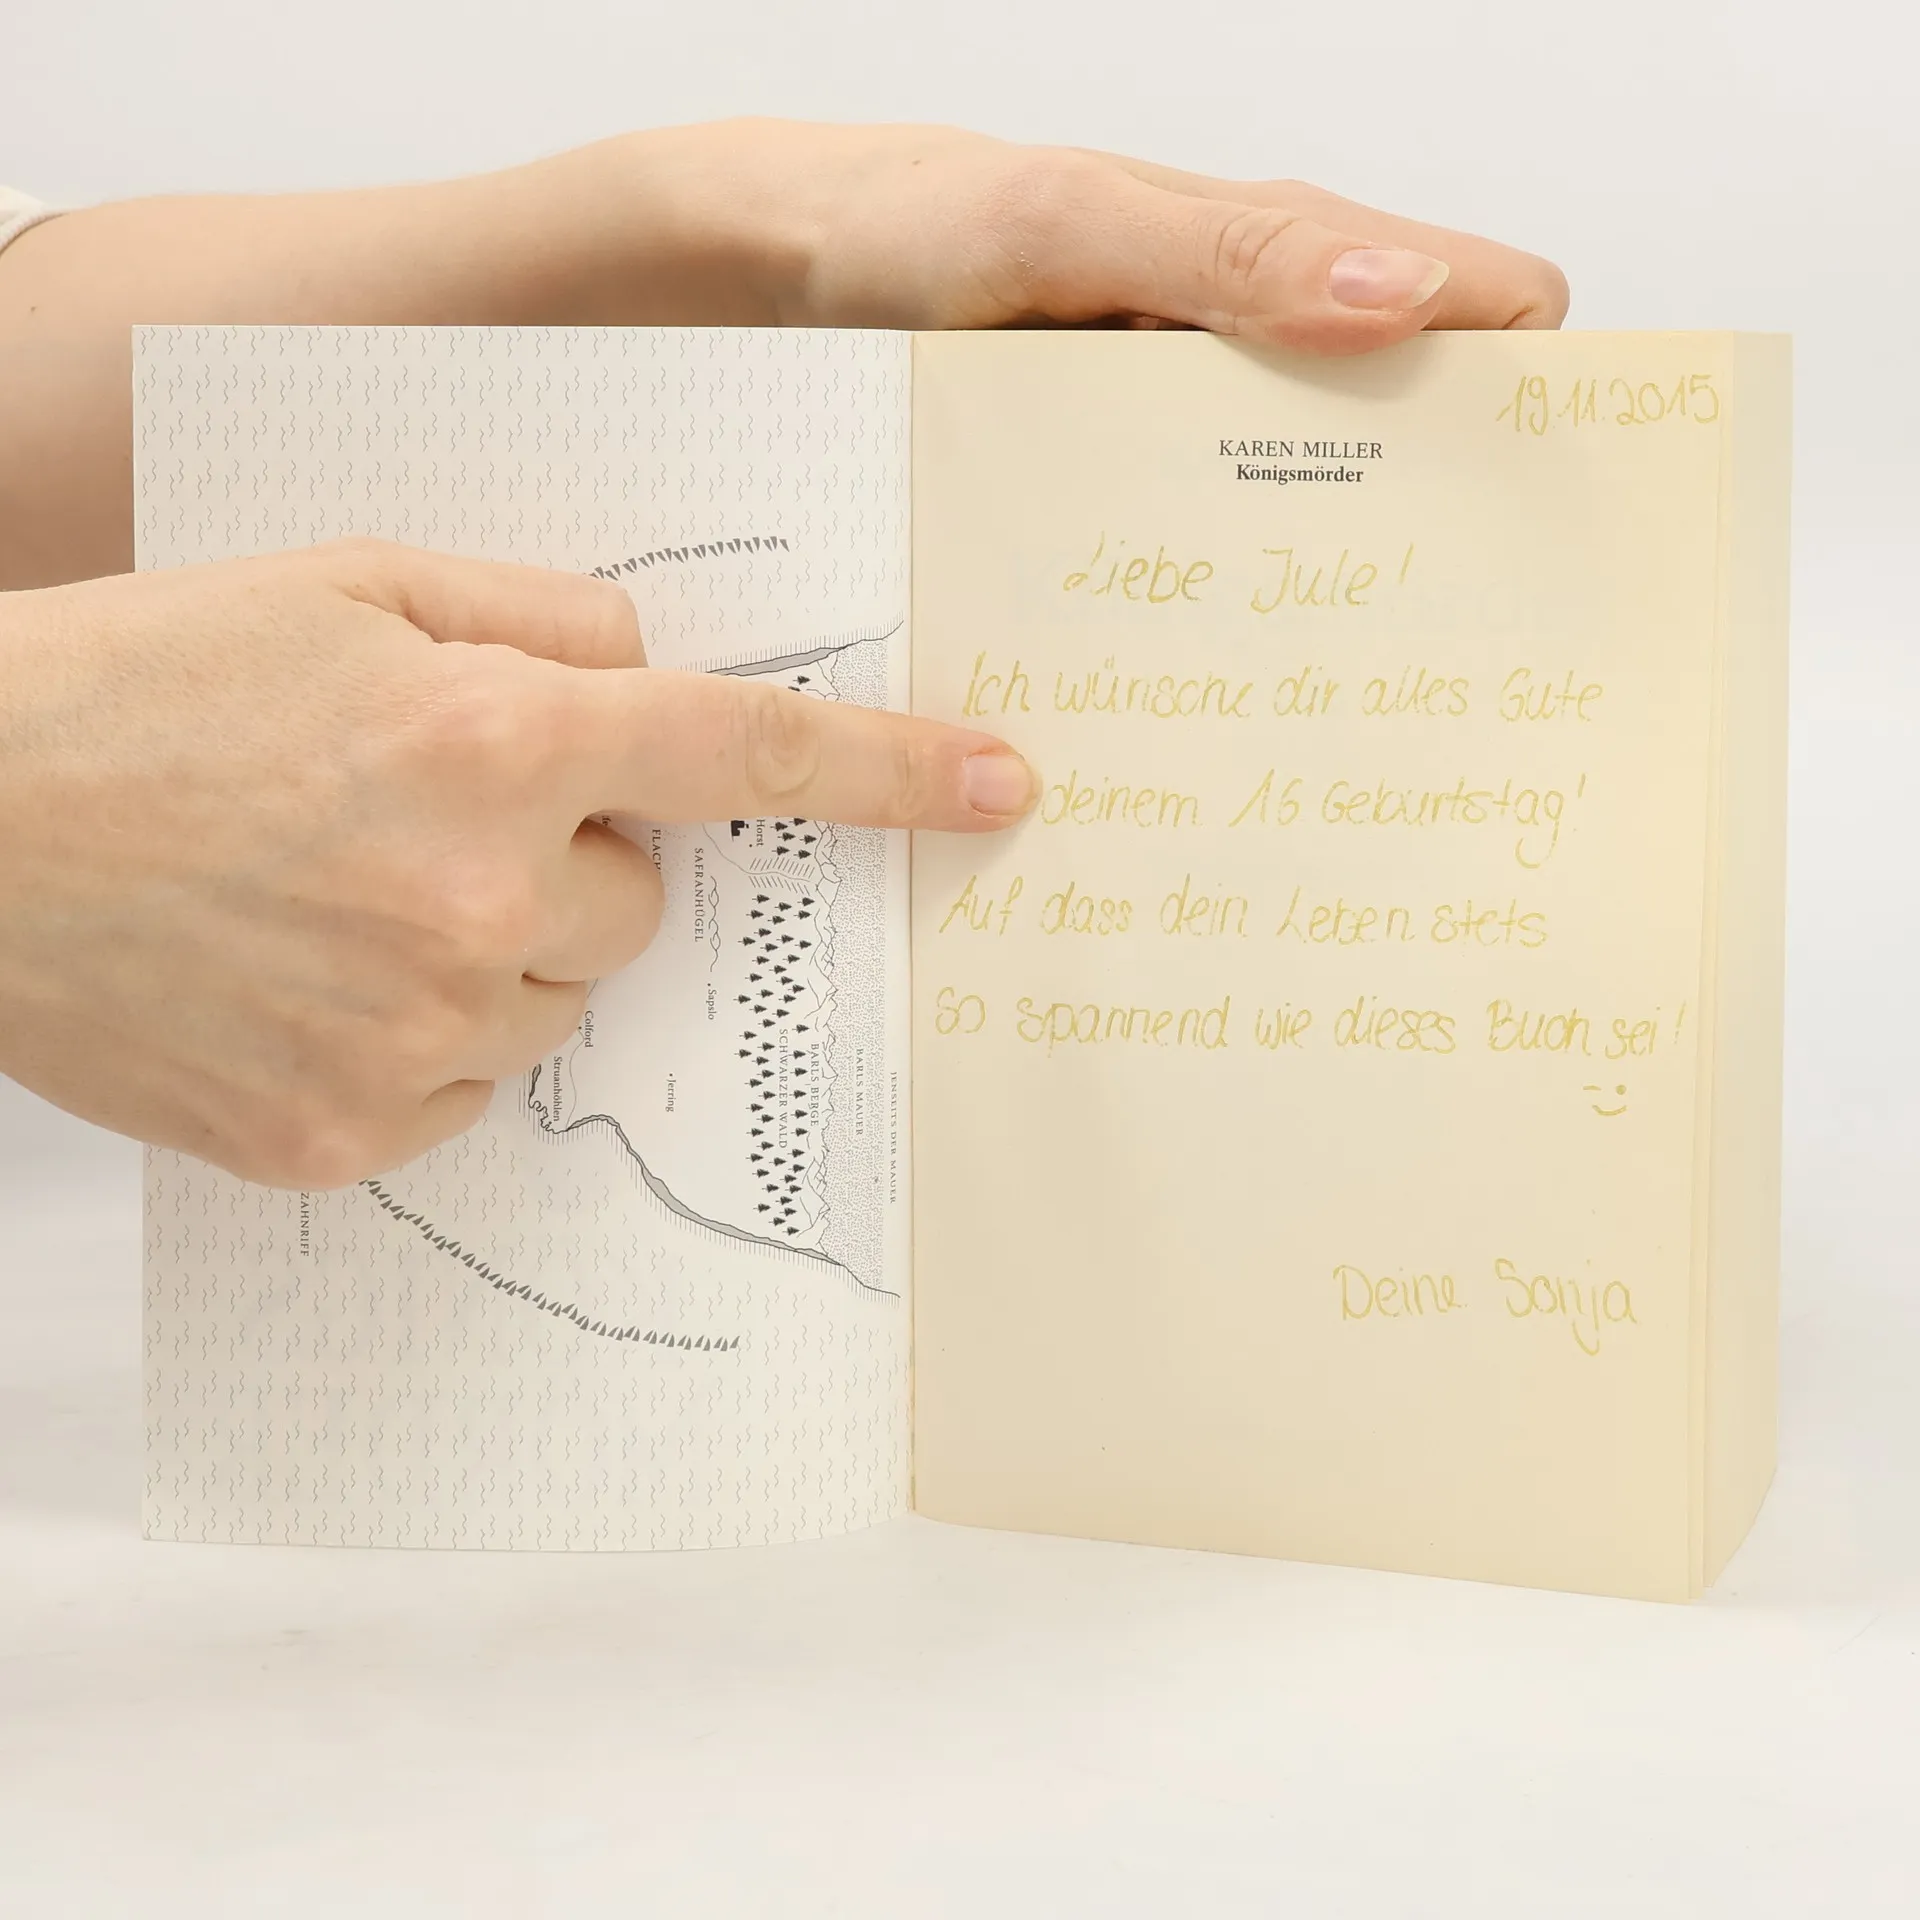 19.11.2015
KAREN MILLER
Königsmörder
Liebe Jule!
Ich wünsche dir alles Gute
deinem 16 Geburtstag!
Auf dass dein Leben stets
so spannend wie dieses Buch sei!
Deine Sonja
Horst
FLACH
SAFRANHÜGEL
Sapslo
Colford
Struanhöhlen
Jerring
SCHWARZER WALD
BARLS BERGE
BARLS MAUER
JENSEITS DER MAUER
ZAHNRIFF